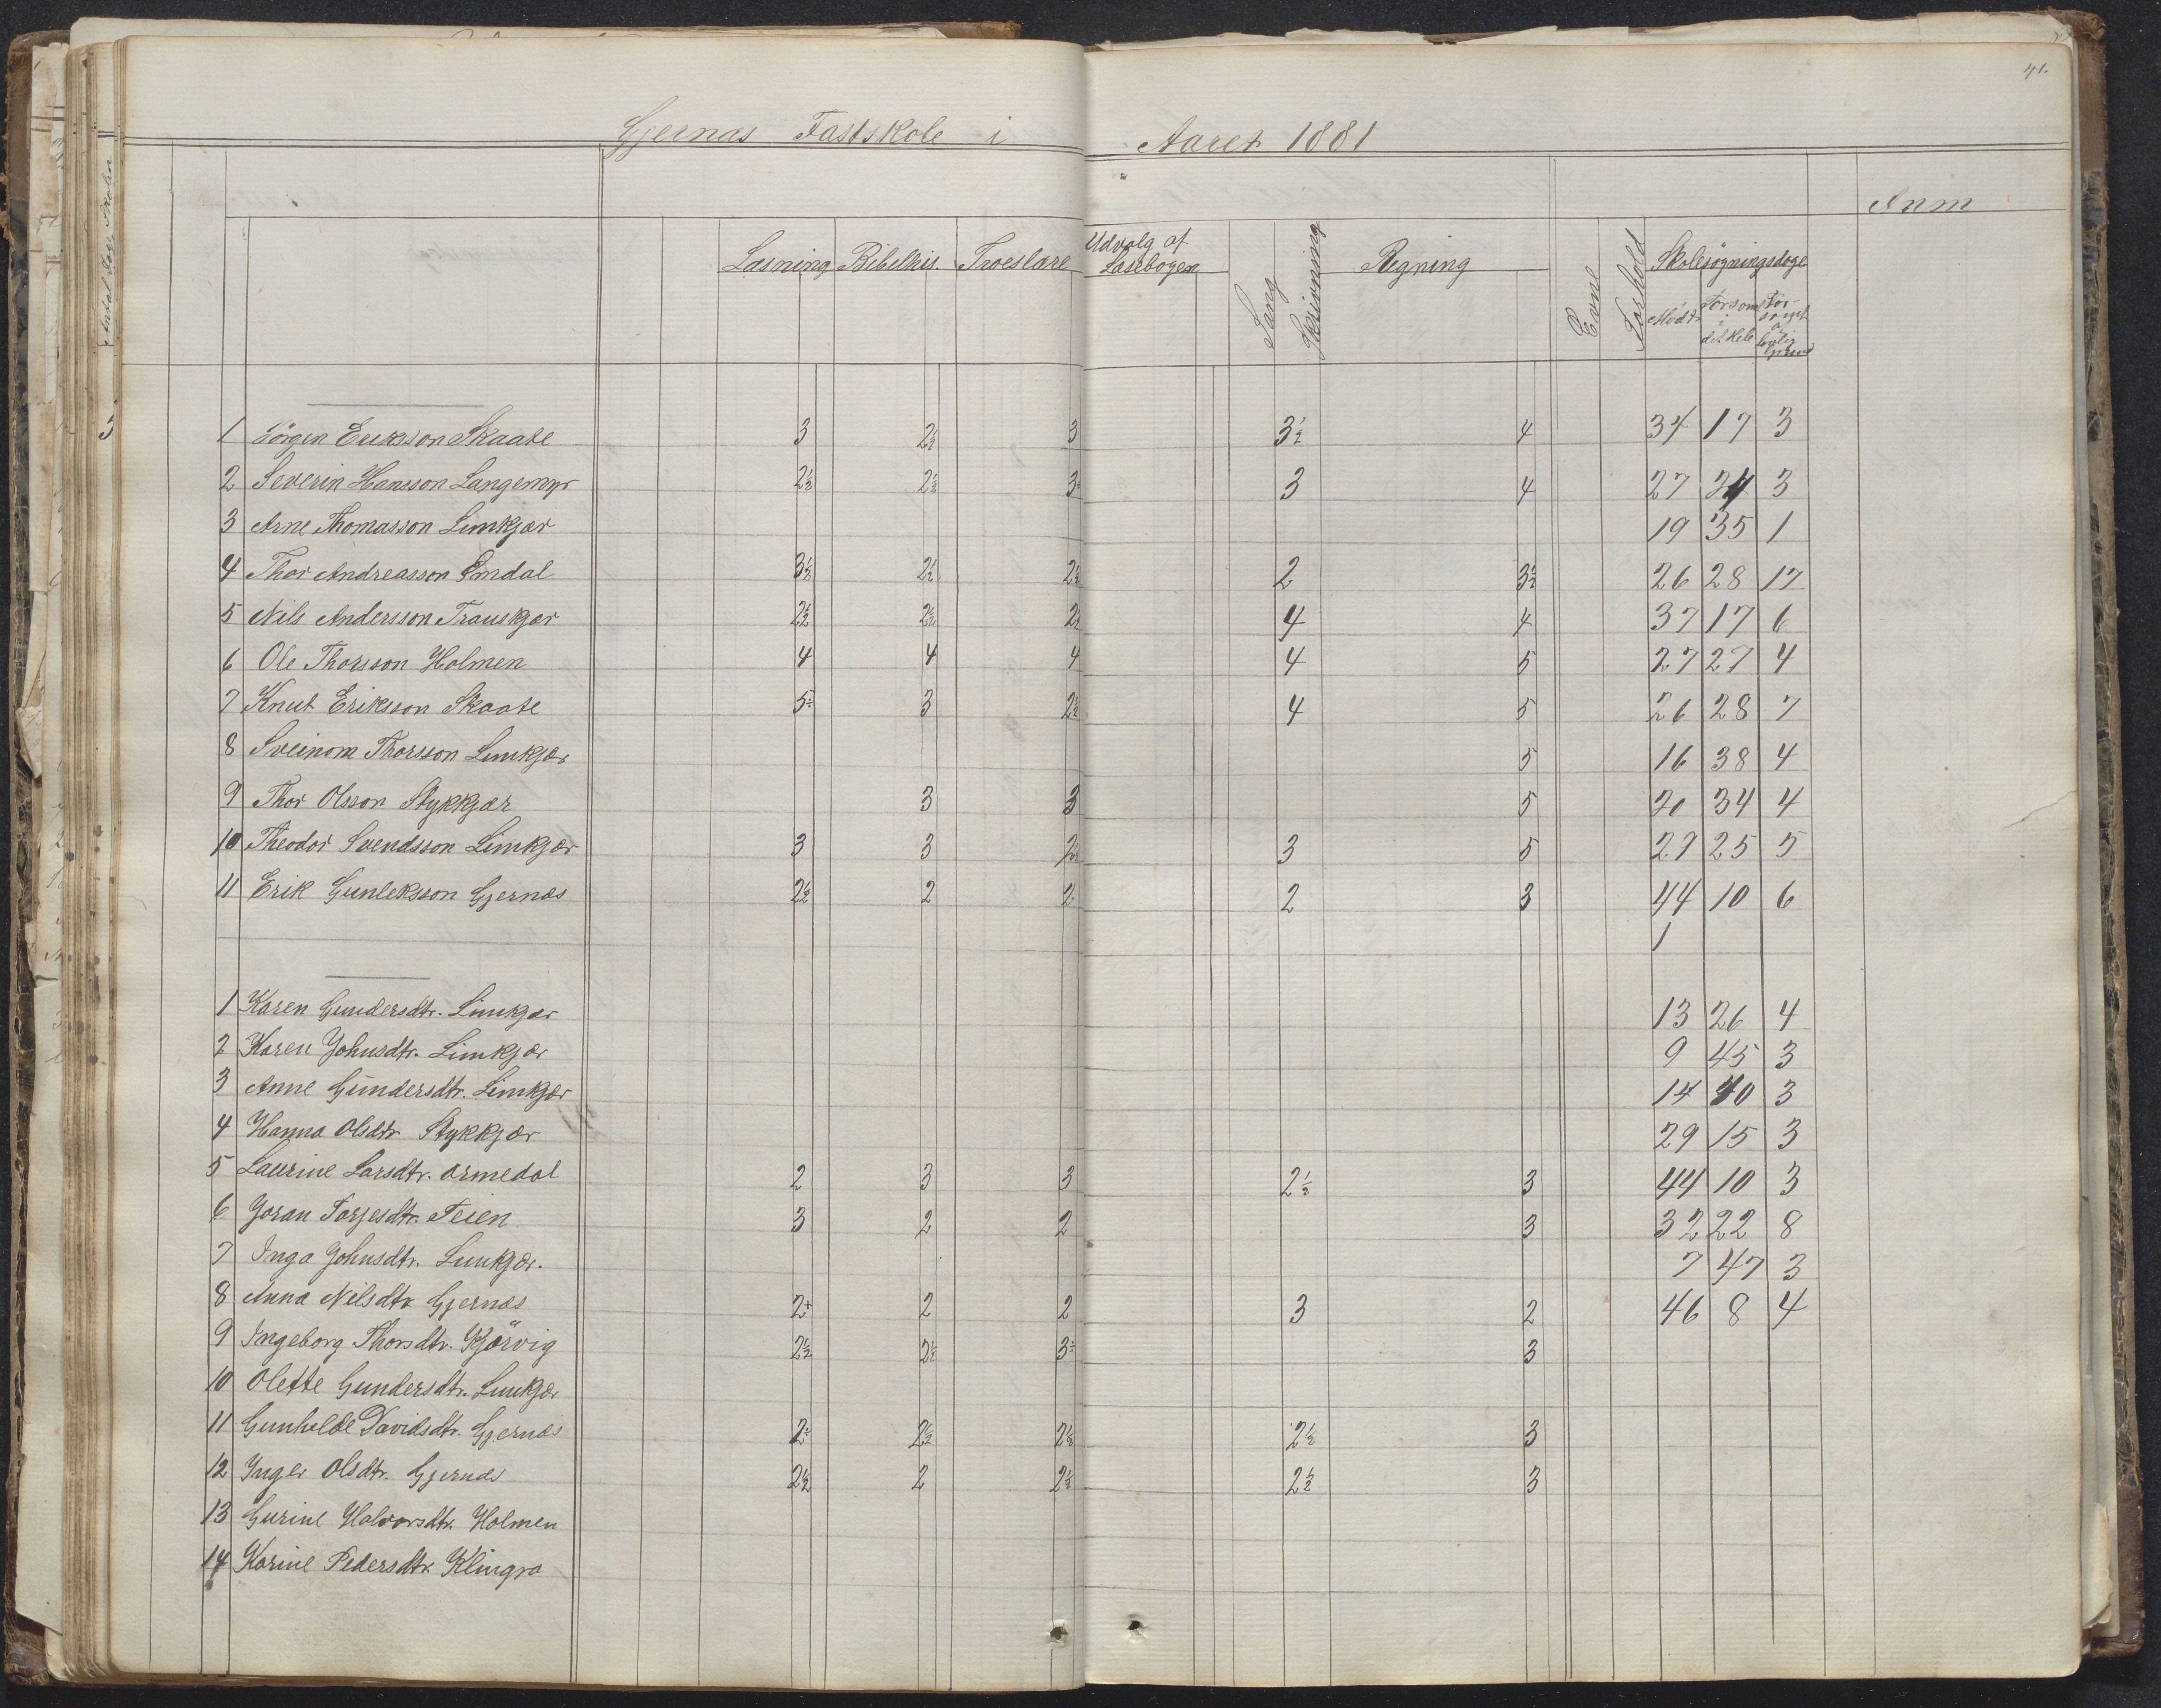 41.
Gjernæs Fastskole i Aaret 1881
Anm
Læsning Bibelhis. Troeslære Udvalg af Læsebogen Sang Skrivning Regning Evne Forhold Skolesøgningsdage
Mødt Forsømt i det Hele Forsømt a lovlig Grund
1 Jörgen Erikson Skaate 3 2½ 3 3½ 4 34 17 3
2 Severin Hansson Langemyr 2½ 2½ 3 3 4 27 3
3 Arne Thomasson Limkjær 19 35 1
4 Thor Andreasson Omdal 3½ 2½ 2½ 2 3½ 26 28 17
5 Nils Andersson Trauskjær 2½ 2½ 2½ 4 4 37 17 6
6 Ole Thorsson Holmen 4 4 4 4 5 27 27 4
7 Knut Eriksson Skaate 5÷ 3 2½ 4 5 26 28 7
8 Sveinom Thorsson Limkjær 5 16 38 4
9 Thor Olsson Stykkjær 3 3 5 20 34 4
10 Theodor Svendsson Limkjær 3 3 2½ 3 5 29 25 5
11 Erik Gunleksson Gjernæs 2½ 2 2 2 3 44 10 6
1
1 Karen Gundersdtr. Limkjær 13 26 4
2 Karen Johnsdtr. Limkjær 9 45 3
3 Anne Gundersdtr. Limkjær 14 40 3
4 Hanna Olsdtr Stykkjær 29 15 3
5 Laurine Larsdtr. Ormedal 2 3 3 2½ 3 44 10 3
6 Joran Torjesdtr. Feien 3 2 2 3 32 22 8
7 Inga Johnsdtr. Limkjær. 7 47 3
8 Anna Nilsdtr Gjernæs 2+ 2 2 3 2 46 8 4
9 Ingeborg Thorsdtr. Kjørvig 2½ 2½ 3÷ 3
10 Olette Gundersdtr. Limkjær
11 Gunhilde Davidsdtr. Gjernæs 2÷ 2½ 2½ 2½ 3
12 Inger Olsdtr. Gjernæs 2½ 2 2½ 2½ 3
13 Gurine Halvorsdtr. Holmen
14 Karine Pedersdtr. Klingra